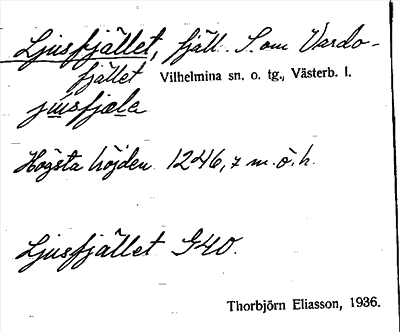 Ljusfjället, fjäll. S om Vardo-
fjället Vilhelmina sn. o. tg., Västerb. l.
jusfjæla
Högsta höjden 1246,7 m.ö.h.
Ljusfjället G40.
Thorbjörn Eliasson, 1936.